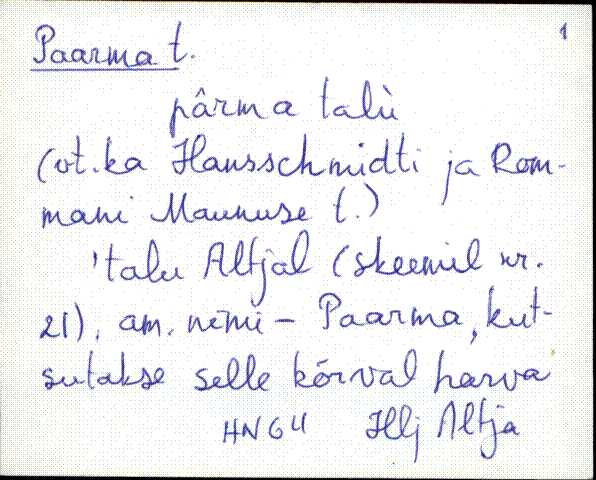 Paarma t. 1
pârma talù
(vt. ka Hansschmidti ja Rom-
mani Maunuse t.)
'talu Altjal (skeemil nr.
21), am. nimi – Paarma, kut-
sutakse selle kõrval harva
HNG4 Hlj Altja